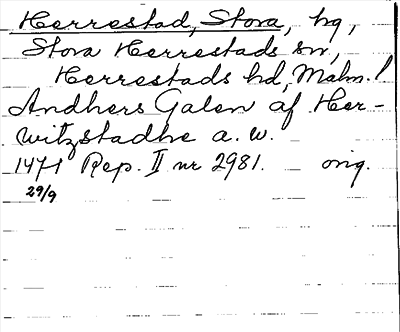 Herrestad, Stora, hg,
Stora Herrestads sn,
Herrestads hd, Malm. l
Andhers Galen af Her-
witzstadhe a. w.
1471 Rep. II nr 2981. orig.
29/9